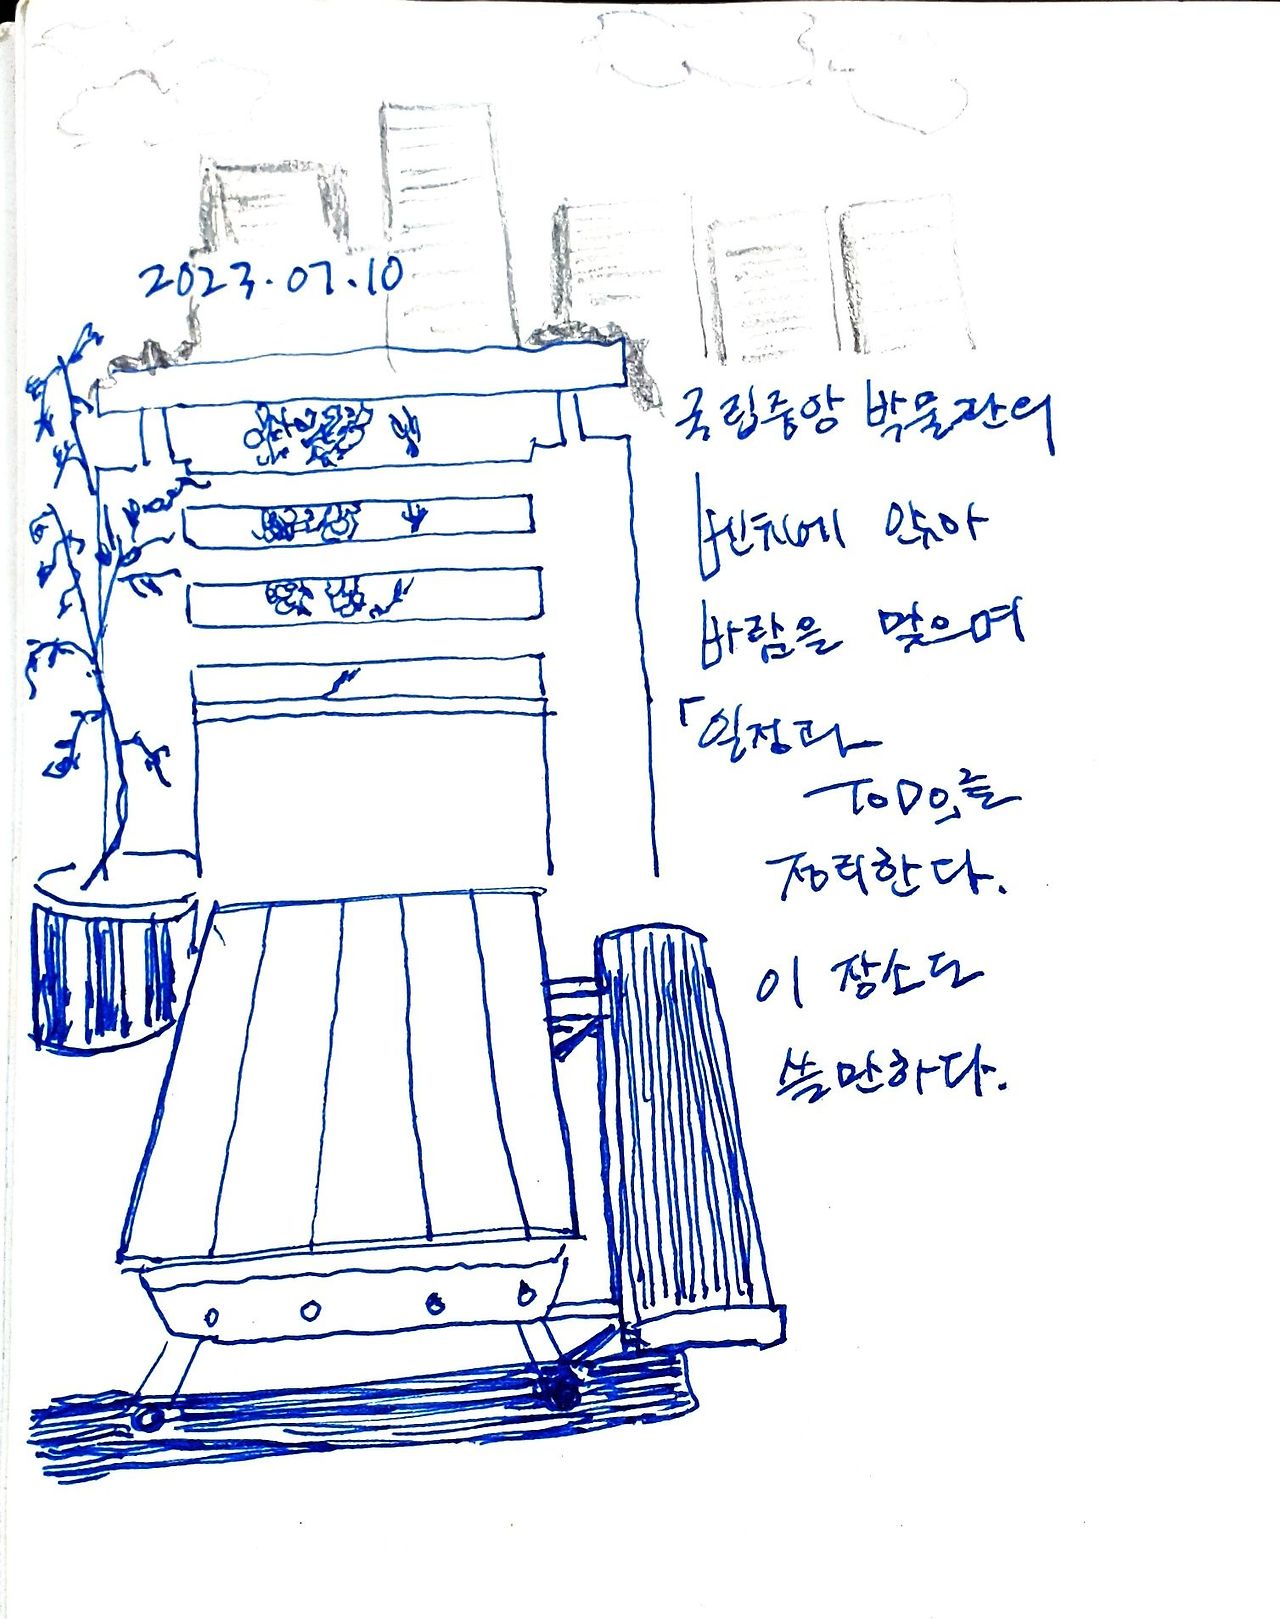 2023.07.10
국립중앙 박물관의
벤치에 앉아
바람을 맞으며
「일정과
ToDo,를
정리한다.
이 장소도
쓸만하다.